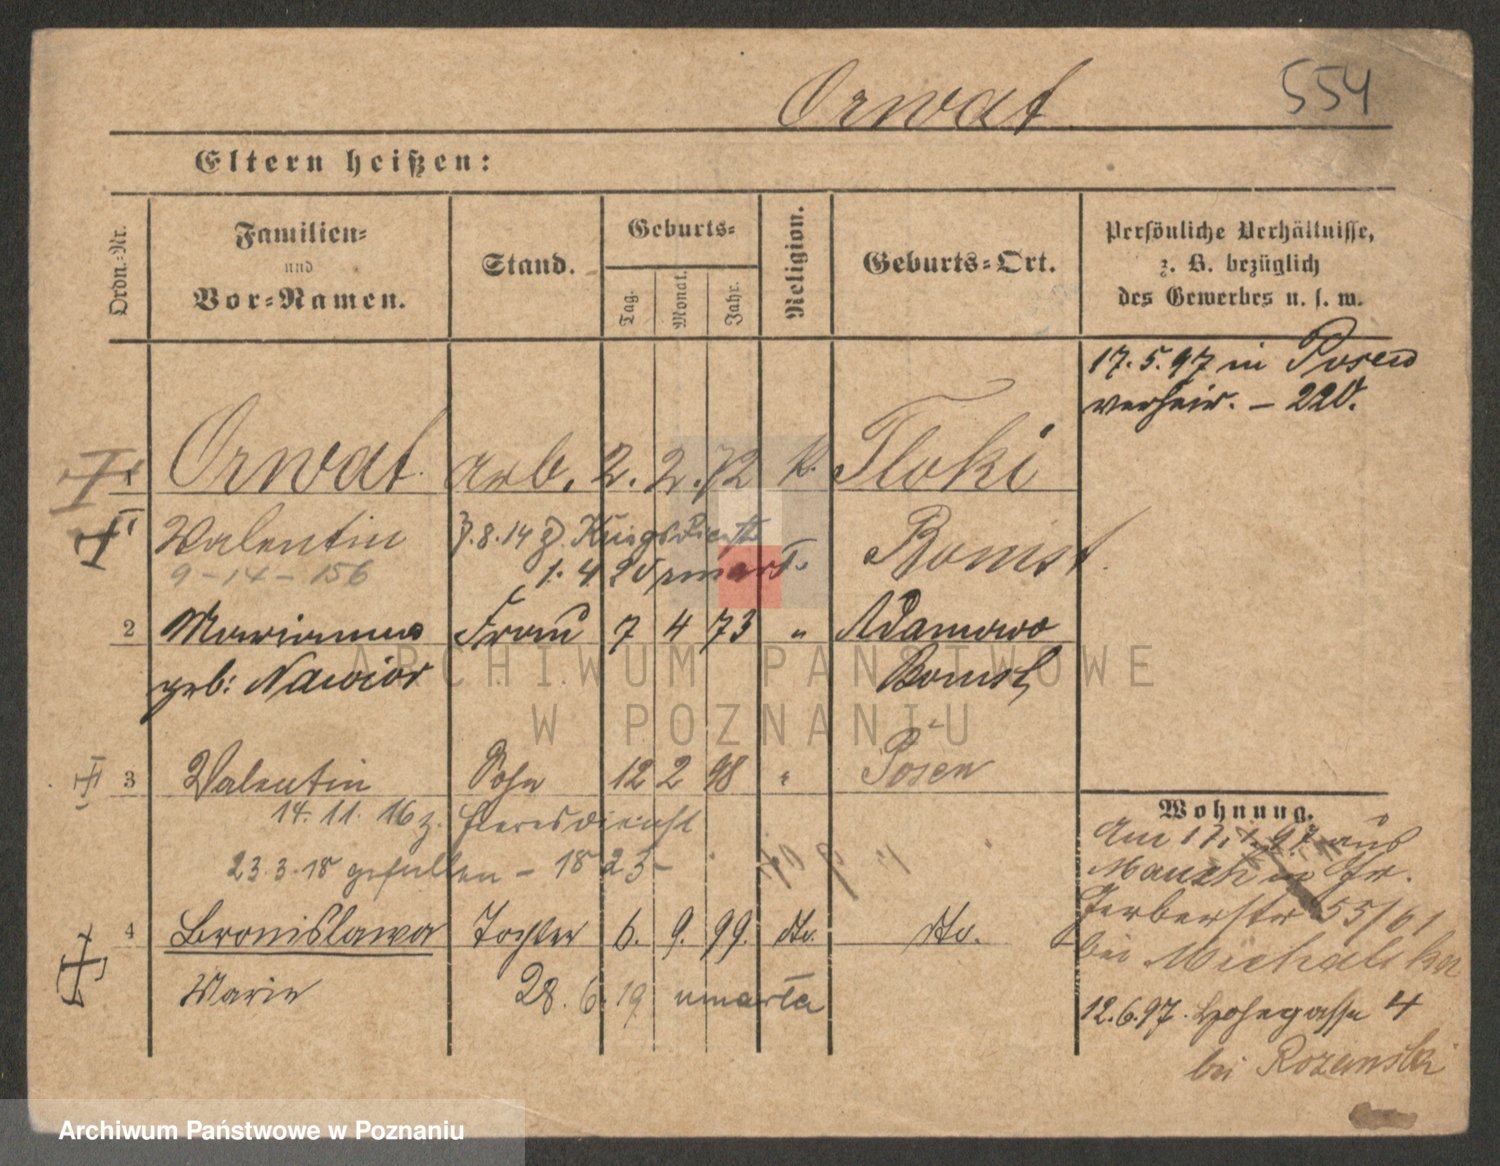 Orwat 554
Eltern heißen:
Ordn.-Nr. Familien- und Vor-Namen. Stand. Geburts- Tag. Monat. Jahr. Religion. Geburts-Ort. Persönliche Verhältnisse, z. B. bezüglich des Gewerbes u. s. w.
17. 5. 97 in Posen
verheir. – 220.
1 Orwat Arb. 2. 2. 72 k. Tloki
Valentin 3.8.14 z. Kriegsdienst Bomst.
9 - 14 - 156 1. 4 20 umarł.
2 Marianna Frau 7 4 73 " Adamowo
geb: Nawior Bomst
3 Valentin Sohn 12 2 98 " Posen
14. 11. 16 z. Heeresdienst
23. 3. 18 gefallen - 18 23 -
Wohnung.
Am 17. 1. 97 aus
in Gr.
Gerberstr 55/61
bei Michalska
4 Bronislawa Tochter 6. 9. 99. dto. dto.
Marie 28. 6. 19 umarła
12. 6. 97. Hohegasse 4
bei Rozanski
ARCHIWUM PAŃSTWOWE
W POZNANIU
Archiwum Państwowe w Poznaniu